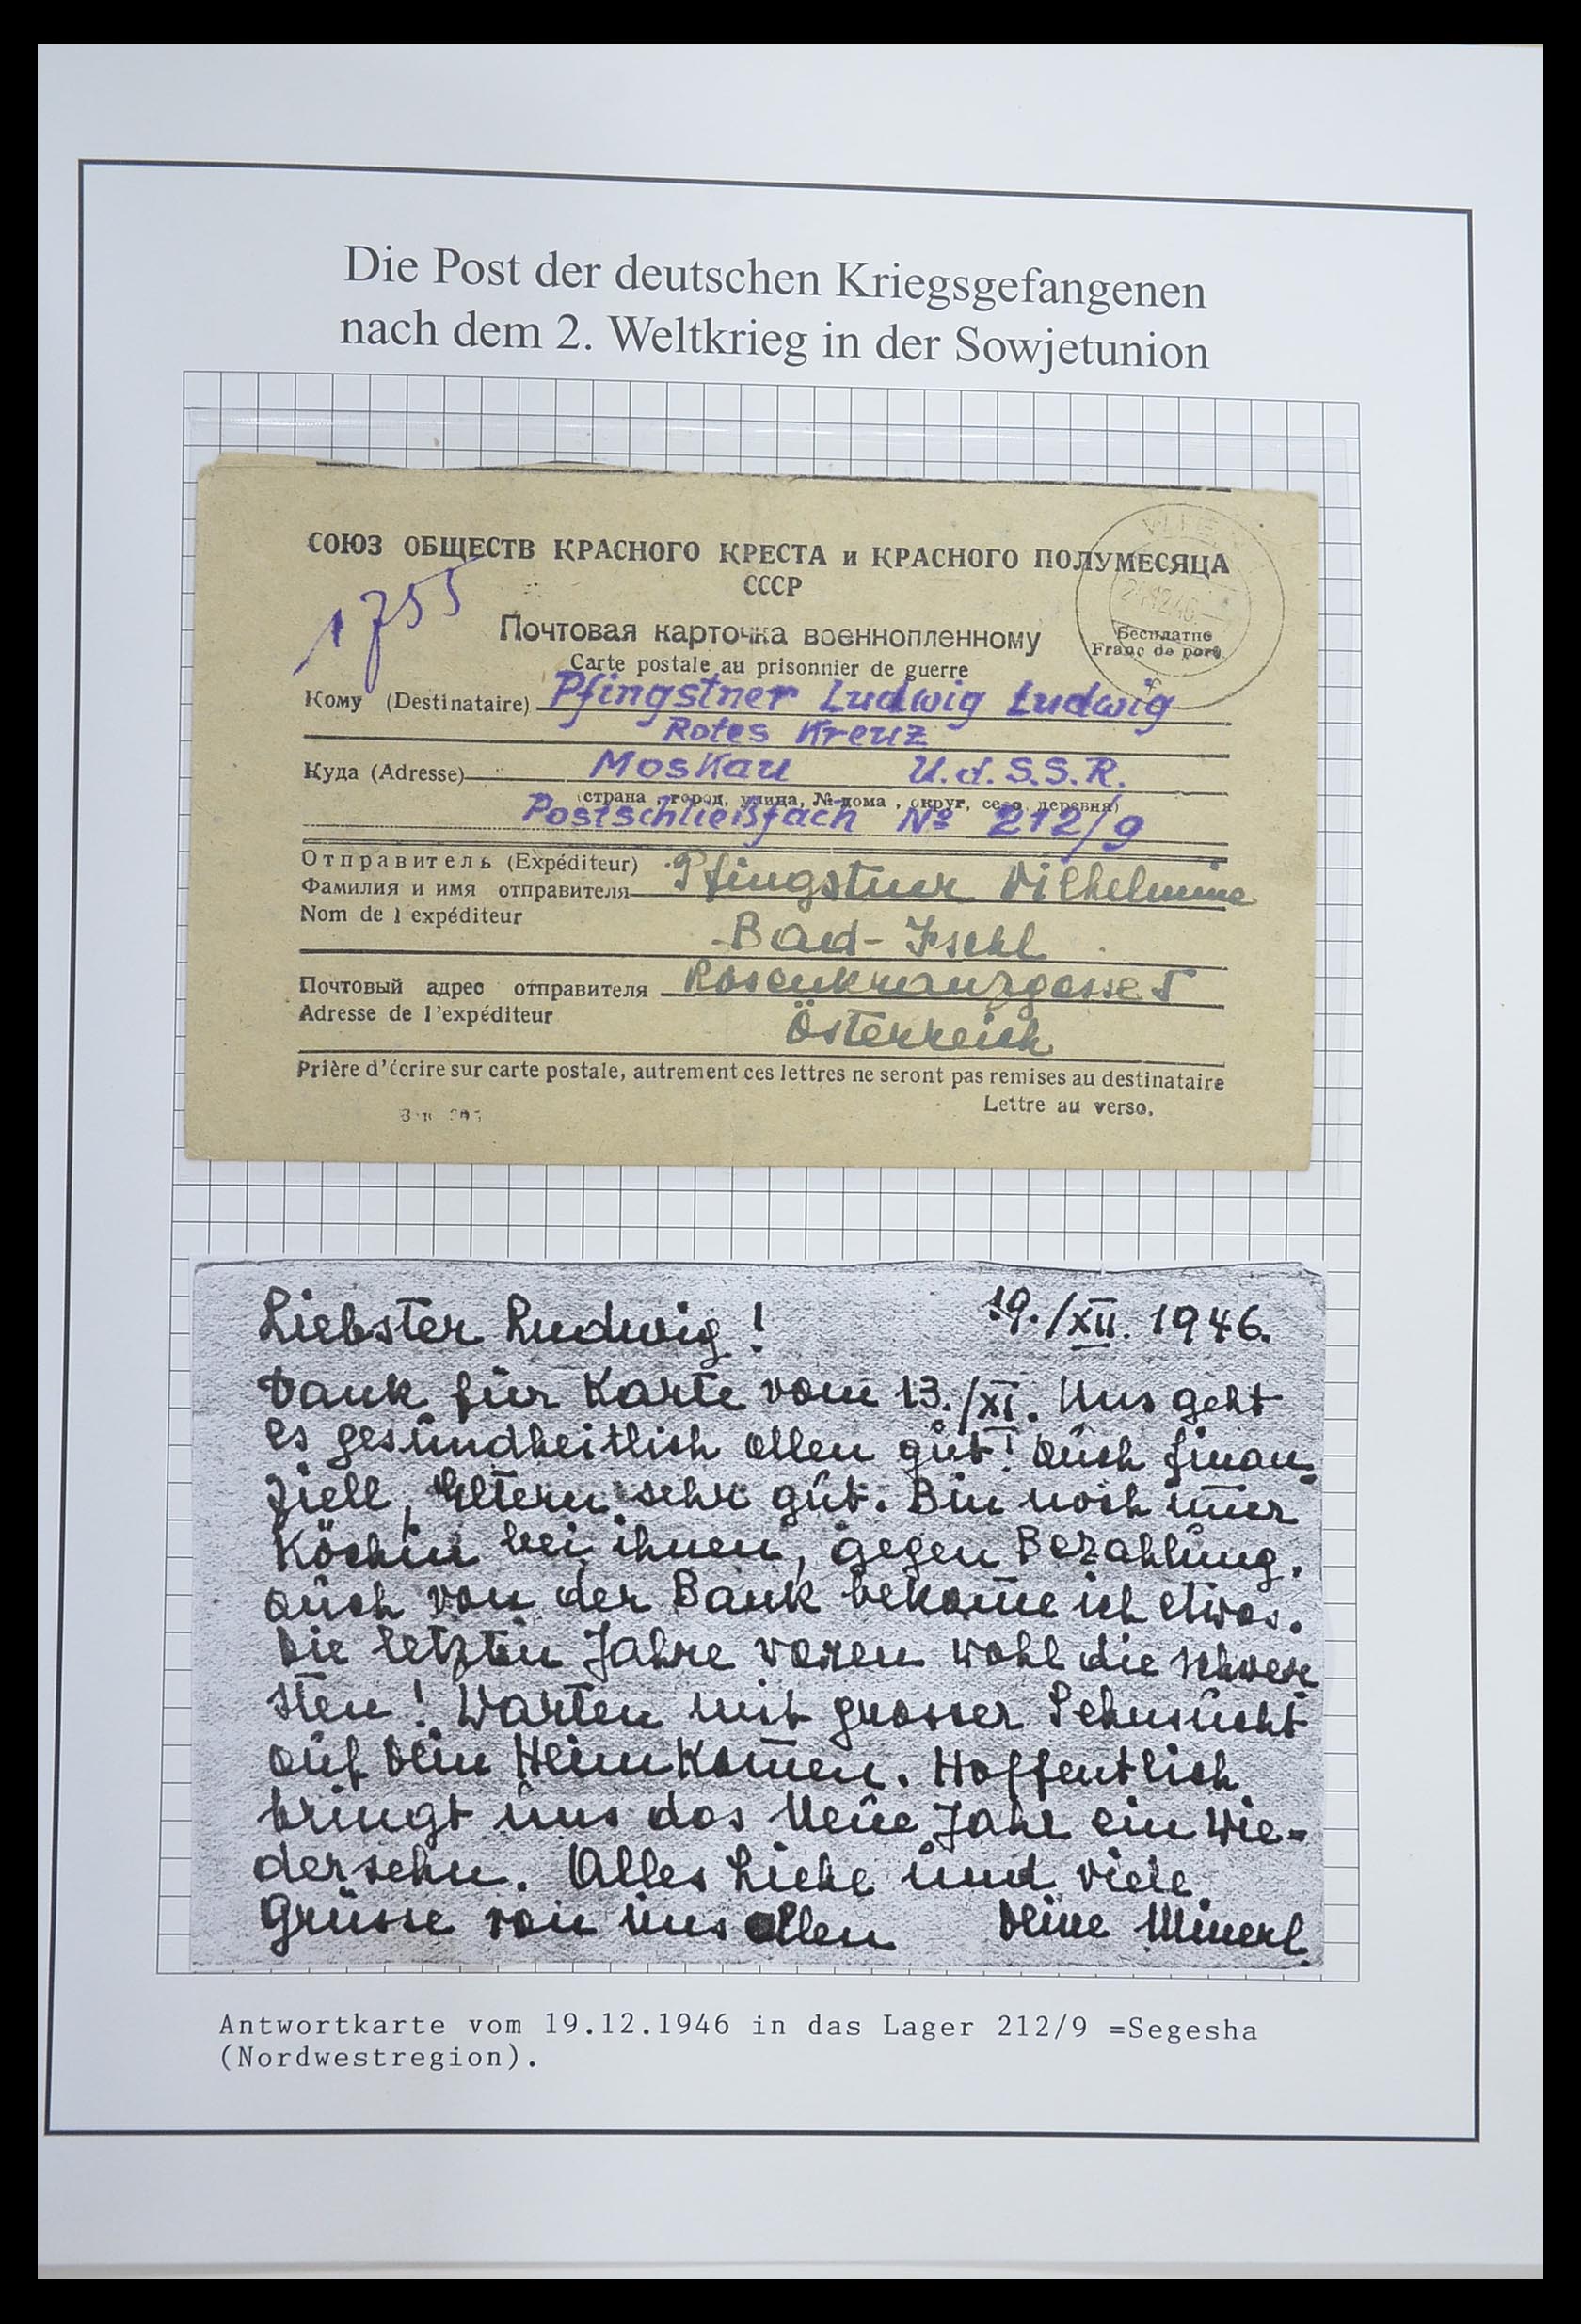 Die Post der deutschen Kriegsgefangenen
nach dem 2. Weltkrieg in der Sowjetunion
СОЮЗ ОБЩЕСТВ КРАСНОГО КРЕСТА и КРАСНОГО ПОЛУМЕСЯЦА
СССР
1755
Почтовая карточка военнопленному
Бесплатно
Franc de port
Carte postale au prisonnier de guerre
Кому (Destinataire) Pfingstner Ludwig Ludwig
Rotes Kreuz
Куда (Adresse) Moskau U.d.S.S.R.
(страна, город, улица, № дома, округ, село, деревня)
Postschließfach No 212/9
Отправитель (Expéditeur)
Фамилия и имя отправителя Pfingstner Wilhelmine
Nom de l expéditeur
Bad-Ischl
Почтовый адрес отправителя Rosenkranzgasse 5
Adresse de l'expéditeur
Österreich
Prière d'écrire sur carte postale, autrement ces lettres ne seront pas remises au destinataire
Lettre au verso.
Liebster Ludwig! 19./XII. 1946.
Dank für Karte vom 13./XI. Uns geht
es gesundheitlich allen gut! Auch finan-
ziell, Eltern sehr gut. Bin noch im̄er
Köchin bei ihnen, gegen Bezahlung.
Auch von der Bank bekom̄e ich etwas.
Die letzten Jahre waren wohl die schwer
sten! Warten mit grosser Sehnsucht
auf Dein Heimkom̄en. Hoffentlich
bringt uns das Neue Jahr ein Wie=
dersehn. Alles Liebe und viele
Grüsse von uns allen Deine Minerl.
Antwortkarte vom 19.12.1946 in das Lager 212/9 =Segesha
(Nordwestregion).